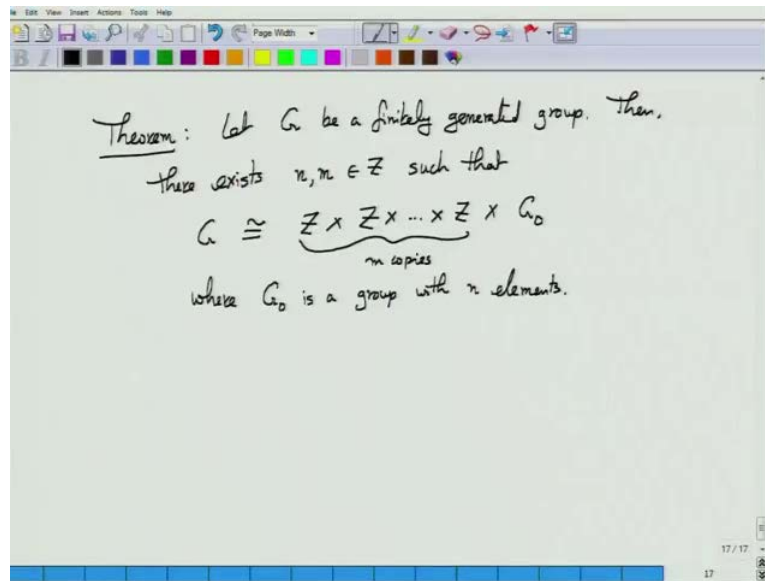 Edit View Insert Actions Tools Help
Page Width
B I
Theorem: Let G be a finitely generated group. Then,
there exists n, m ∈ Z such that
G ≅ Z × Z × ... × Z × G₀
m copies
where G₀ is a group with n elements.
17/17
17